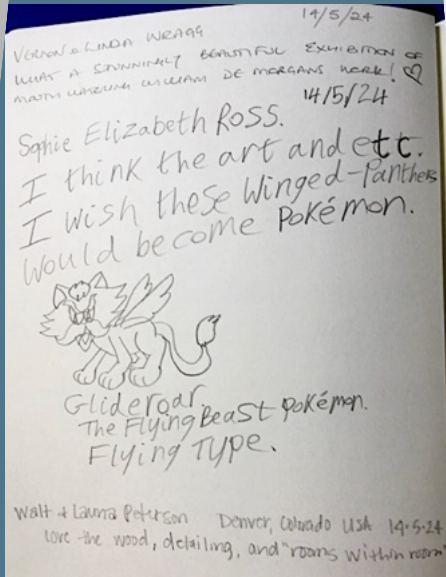 14/5/24
VERNON & LINDA WRAGG
WHAT A STUNNINGLY BEAUTIFUL EXHIBITION OF
WILLIAM DE MORGANS WORK!♡
14/5/24
Sophie Elizabeth Ross.
I think the art and ett.
I wish these Winged-Panthers
would become Pokémon.
Glideroar.
The Flying Beast Pokémon.
Flying Type.
Walt & Launa Peterson Denver, Colorado USA 14.5.24
love the wood, detailing, and "rooms within room"